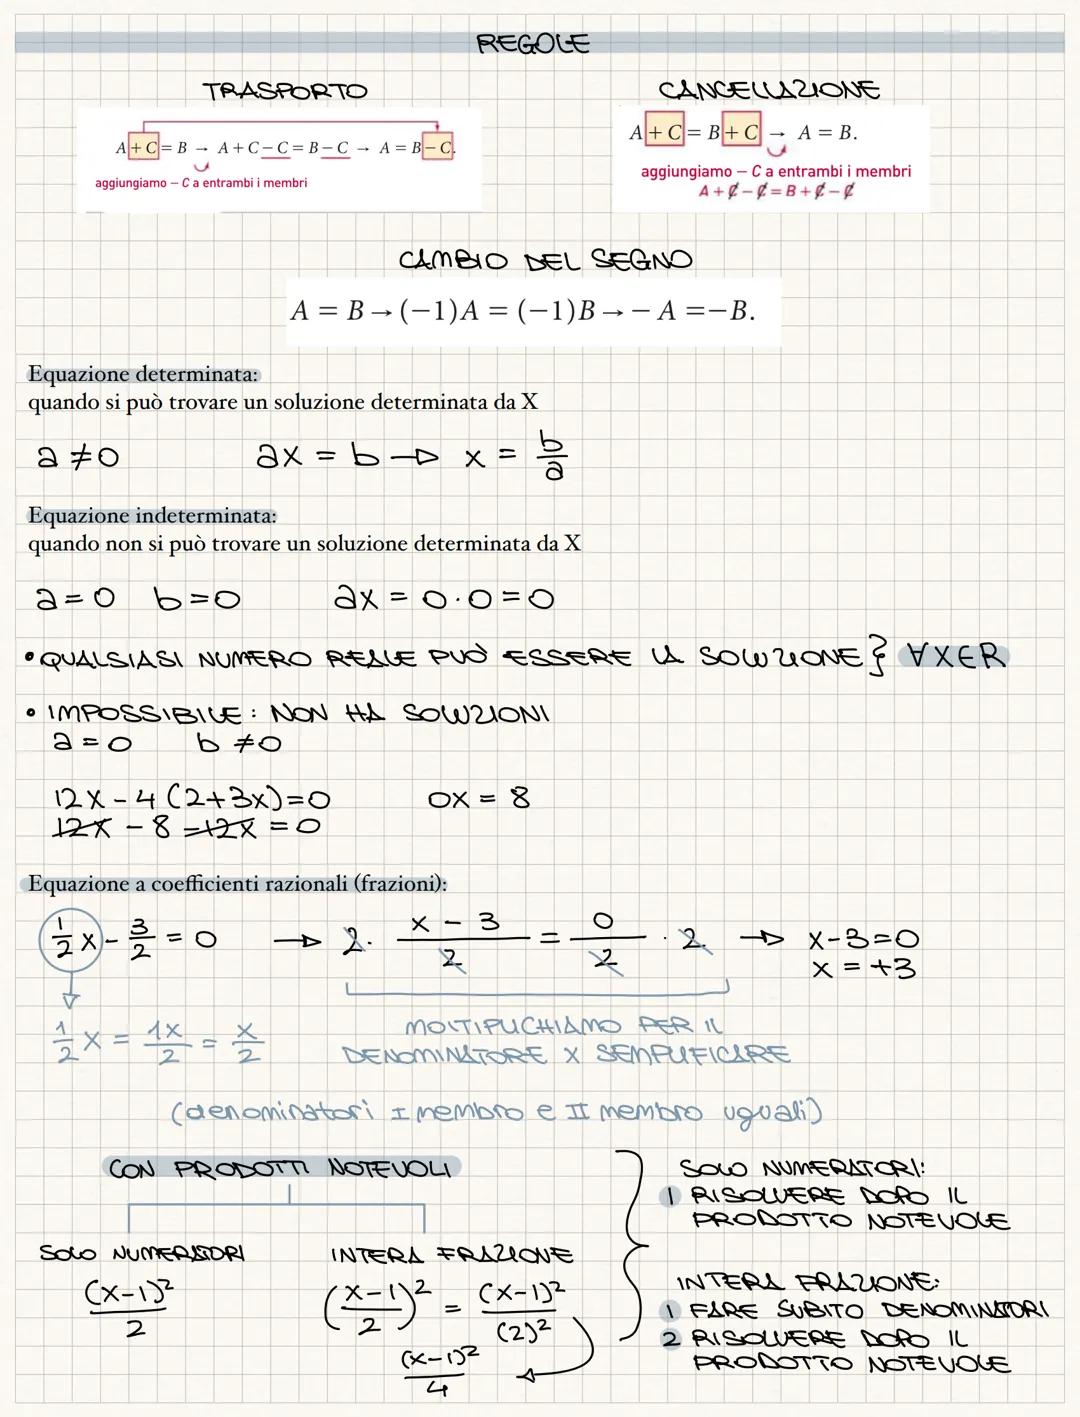 REGOLE
TRASPORTO
A + C = B → A + C – C = B – C → A = B – C.
aggiungiamo – C a entrambi i membri
CANCELLAZIONE
A + C = B + C → A = B.
aggiungiamo – C a entrambi i membri
A + C – C = B + C – C
CAMBIO DEL SEGNO
A = B → (−1)A = (−1)B → − A =−B.
Equazione determinata:
quando si può trovare un soluzione determinata da X
a ≠ 0 ax = b → x = b/a
Equazione indeterminata:
quando non si può trovare un soluzione determinata da X
a = 0 b = 0 ax = 0·0 = 0
• QUALSIASI NUMERO REALE PUÒ ESSERE LA SOLUZIONE } ∀XER
• IMPOSSIBILE: NON HA SOLUZIONI
a = 0 b ≠ 0
12X – 4 (2+3x) = 0 0X = 8
12X – 8 – 12X = 0
Equazione a coefficienti razionali (frazioni):
1/2 X – 3/2 = 0 → 2· (X – 3)/2 = 0/2 · 2 → X–3=0
X = +3
1/2 X = 1X/2 = X/2
MOLTIPLICHIAMO PER IL
DENOMINATORE X SEMPLIFICARE
(denominatori I membro e II membro uguali)
CON PRODOTTI NOTEVOLI
SOLO NUMERATORI
(X–1)²/2
INTERA FRAZIONE
((X–1)/2)² = (X–1)²/(2)²
(X–1)²/4
SOLO NUMERATORI:
1 RISOLVERE DOPO IL
PRODOTTO NOTEVOLE
INTERA FRAZIONE:
1 FARE SUBITO DENOMINATORI
2 RISOLVERE DOPO IL
PRODOTTO NOTEVOLE